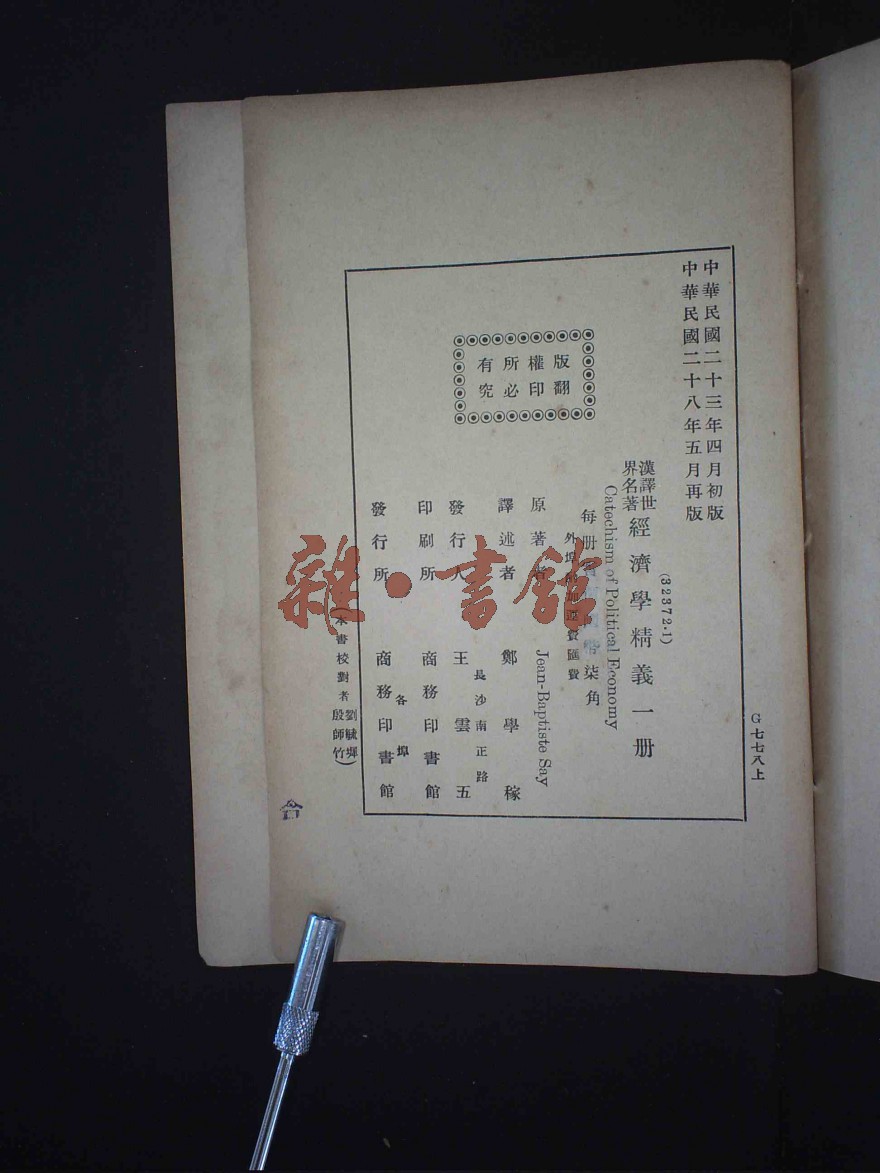 中華民國二十三年四月初版
中華民國二十八年五月再版
G七七八上
(32372·1)
漢譯世界名著
經濟學精義一册
Catechism of Political Economy
每册
幣柒角
外埠
運費匯費
版權所有
翻印必究
原著者
Jean-Baptiste Say
譯述者
鄭學稼
發行人
王雲五
長沙南正路
印刷所
商務印書館
發行所
商務印書館
各埠
(本書校對者
劉毓
殷師竹)
雜·書館